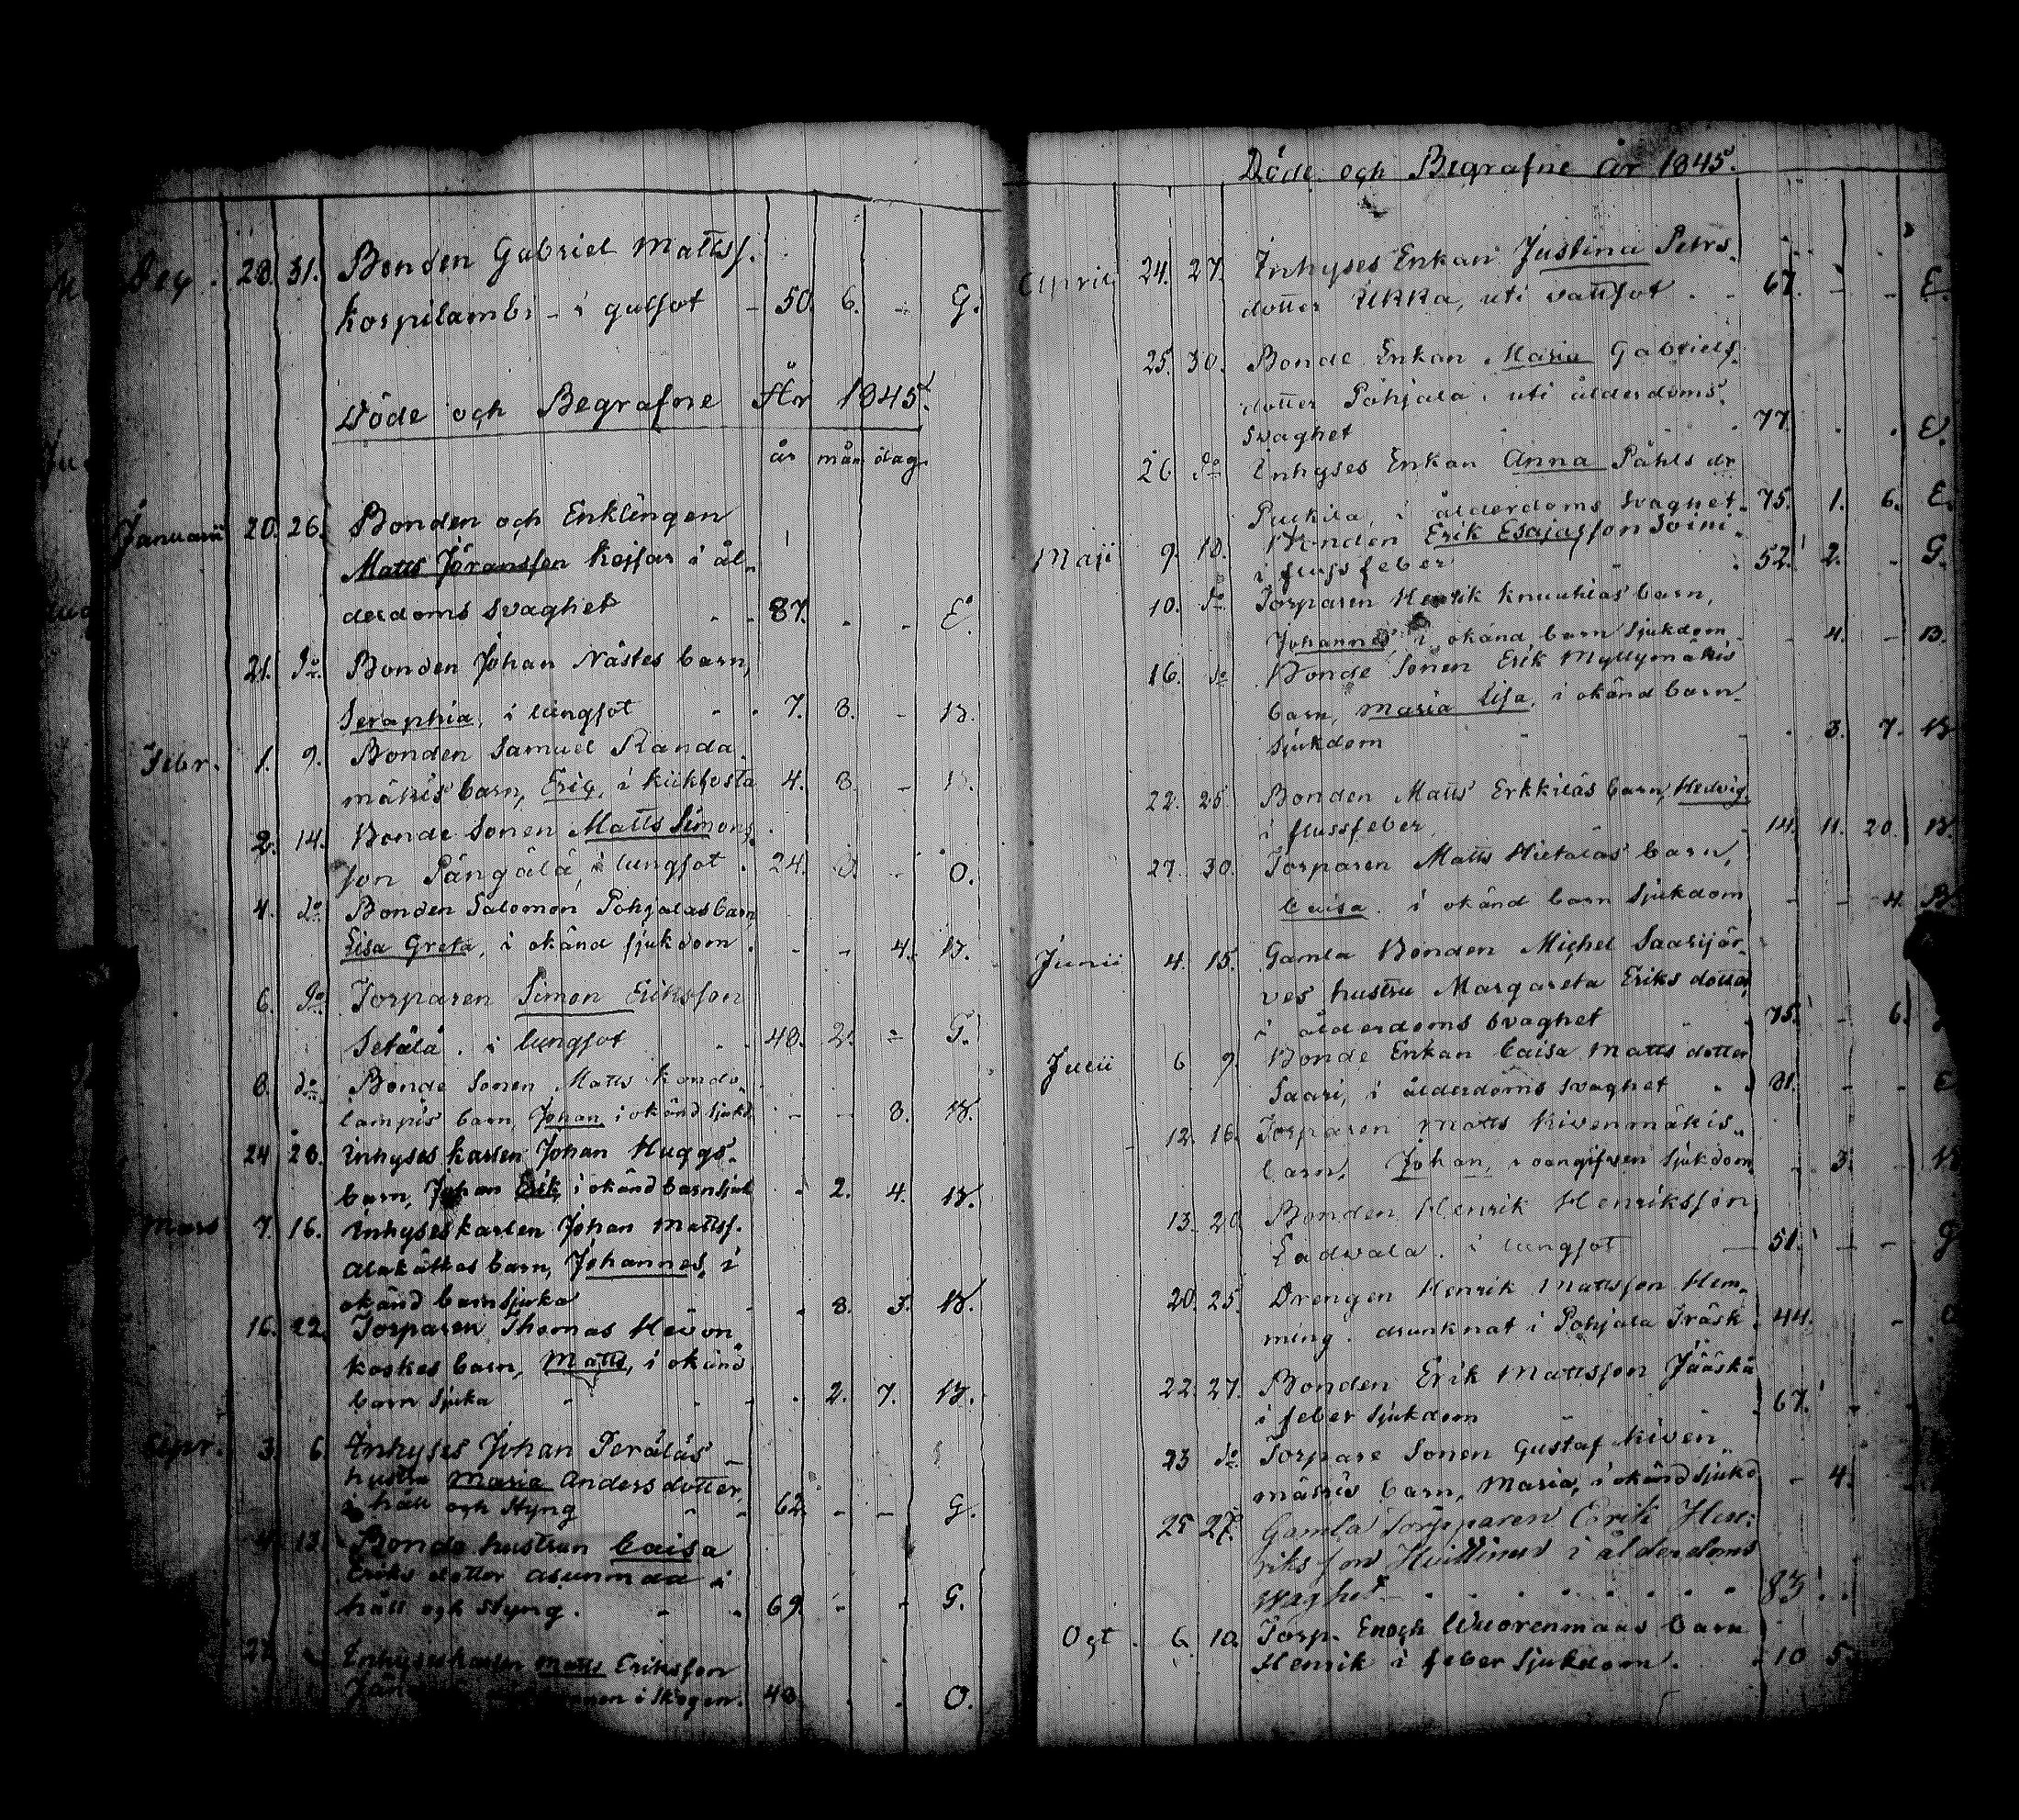 Dec. 28. 31. Bonden Gabriel Matts s.
Korpilambi - i gulsot - 50. 6. - G.
Döde och Begrafne År 1845.
år mån dag
Januarii 20. 26. Bonden och Enklingen
Matts Jöransson i ål-
derdoms svaghet 87. . - E.
21. do. Bonden Johan Nästes barn,
Seraphia, i lungsot 7. 8. - B.
Febr. 1. 9. Bonden Samuel Randa
mäkis barn, Eric, i kikhosta 4. 8. - B.
2. 14. Bonde Sonen Matts Simons
son Pängälä, i lungsot. 24. O.
4. do. Bonden Salomon Pohjalas barn,
Lisa Greta, i okänd sjukdom. - - 4. B.
6. do. Torparen Simon Eriksson
Setälä. i lungsot 48. 2. - G.
8. do. Bonde Sonen Matts Kando-
lampis barn, Johan, i okänd sjukd. - - 8. B.
24 28. Inhyses karlen Johan Huggs-
barn, Johan Erik, i okänd barnsjuk . 2. 4. B.
Mars 7. 16. Inhyseskarlen Johan Matts s.
barn, Johannes, i
okänd barnsjuka . 8. 3. B.
16. 22. Torparen Thomas Hevon
koskes barn, Matts, i okänd
barn sjuka . 2. 7. B.
Apr. 3. 6. Inhyses Johan Peräläs
hustru Maria Andersdotter,
i håll och styng 62. - - G.
4. 13. Bonde hustrun Caisa
Eriks dotter Asunmaa i
håll och styng. 69. - - G.
Inhyseskarlen Matts Eriksson
i skogen. 48. . . O.
Döde och Begrafne år 1845.
April 24. 27. Inhyses Enkan Justina Petrs-
dotter Ukka, uti vattsot . - 67. - - E.
25. 30. Bonde Enkan Maria Gabriels-
dotter Pohjala, uti ålderdoms-
svaghet 77 . . E.
26 do Inhyses Enkan Anna Påhls dr
Puckila, i ålderdoms svaghet. 75. 1. 6. E.
Maji 9. 18. Bonden Erik Esajasson Soini
i flussfeber 52. 2. - G.
10. do. Torparen Henrik Knuuhias barn,
Johannes, i okänd barn sjukdom - - 4. - B.
16. do Bonde Sonen Erik Myllymäkis
barn, Maria Lisa, i okänd barn
sjukdom - . 3. 7. B
22. 25. Bonden Matts Erkkiläs barn, Hedvig
i flussfeber 14. 11. 20. B.
27. 30. Torparen Matts Hietalas barn,
Caisa. i okänd barn sjukdom - - 4. B.
Junii 4. 15. Gamla Bonden Michel Saarijär-
ves hustru Margareta Eriks dotter,
i ålderdoms svaghet 75. - 6.
Julii 6 9. Bonde Enkan Caisa Matts dotter
Saari, i ålderdoms svaghet 81. - - E
12. 16. Torparen Matts Kivenmäkis-
barn, Johan, i oangifven sjukdom - 3. - B
13. 20 Bonden Henrik Henriksson
Ladvala. i lungsot 51. - - G
20. 25. Drengen Henrik Mattsson Hem-
ming. drunknat i Pohjala Träsk. 44. -
22. 27. Bonden Erik Mattsson Jääskä
i feber sjukdom 67. - .
23 do. Torpare Sonen Gustaf Kiven
mäkis barn, Maria, i okänd sjukd - 4.
25 27. Gamla Torpparen Erik Hen-
riksson i ålderdoms
svaghet 83 . .
Oct. 6. 10. Torp. Enoch Wuorenmaas barn
Henrik i feber sjukdom. 10 5.